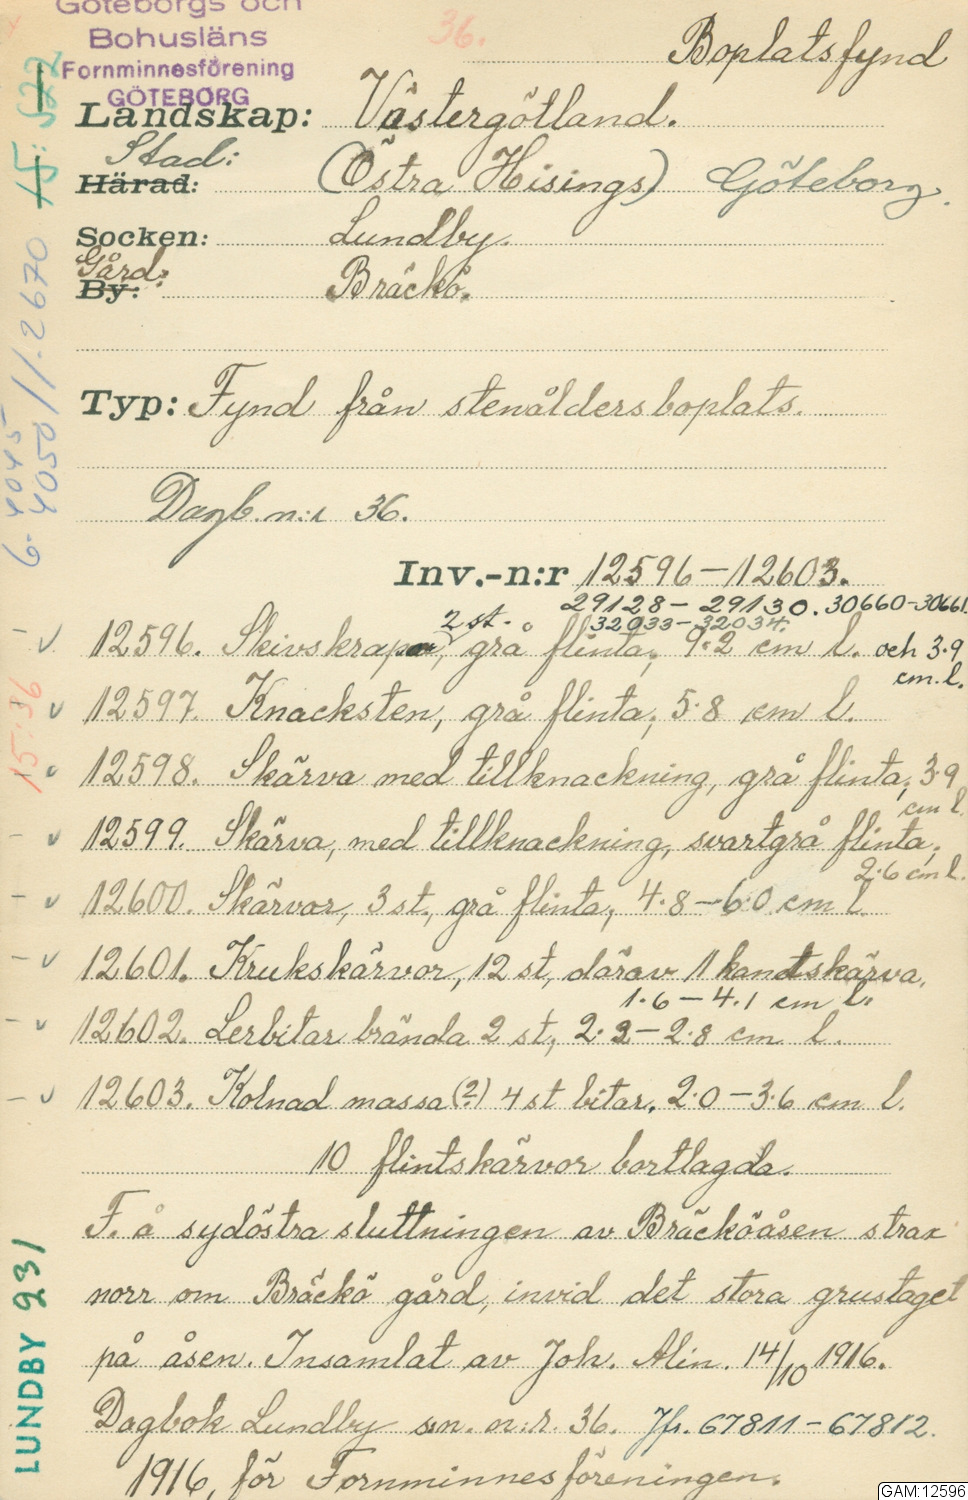 Göteborgs och
Bohusläns
Fornminnesförening
GÖTEBORG
36.
Boplatsfynd
Landskap: Västergötland.
Stad:
Härad: (Östra Hisings) Göteborg.
Socken: Lundby.
Gård:
By: Bräckö.
Typ: Fynd från stenåldersboplats.
Dagb. n:r 36.
Inv.-n:r 12596–12603.
29128–29130. 30660–30661.
32033–32034.
2 st.
12596. Skivskrapor, grå flinta, 9.2 cm l. och 3.9
cm. l.
12597. Knacksten, grå flinta, 5.8 cm l.
12598. Skärva med tillknackning, grå flinta, 3.9
cm l.
12599. Skärva, med tillknackning, svartgrå flinta,
2.6 cm l.
12600. Skärvor, 3 st., grå flinta, 4.8–6.0 cm l.
12601. Krukskärvor, 12 st, därav 1 kantskärva,
1.6–4.1 cm l.
12602. Lerbitar brända 2 st, 2.2–2.8 cm l.
12603. Kolnad massa (?) 4 st bitar. 2.0–3.6 cm l.
10 flintskärvor bortlagda.
F. å sydöstra sluttningen av Bräcköåsen strax
norr om Bräckö gård, invid det stora grustaget
på åsen. Insamlat av Joh. Alin. 14/10 1916.
Dagbok Lundby sn. n:r. 36. Jfr. 67811–67812.
1916, för Fornminnesföreningen.
15: 522
6. 4045
4050 // 2670
15:36
LUNDBY 231
GAM:12596